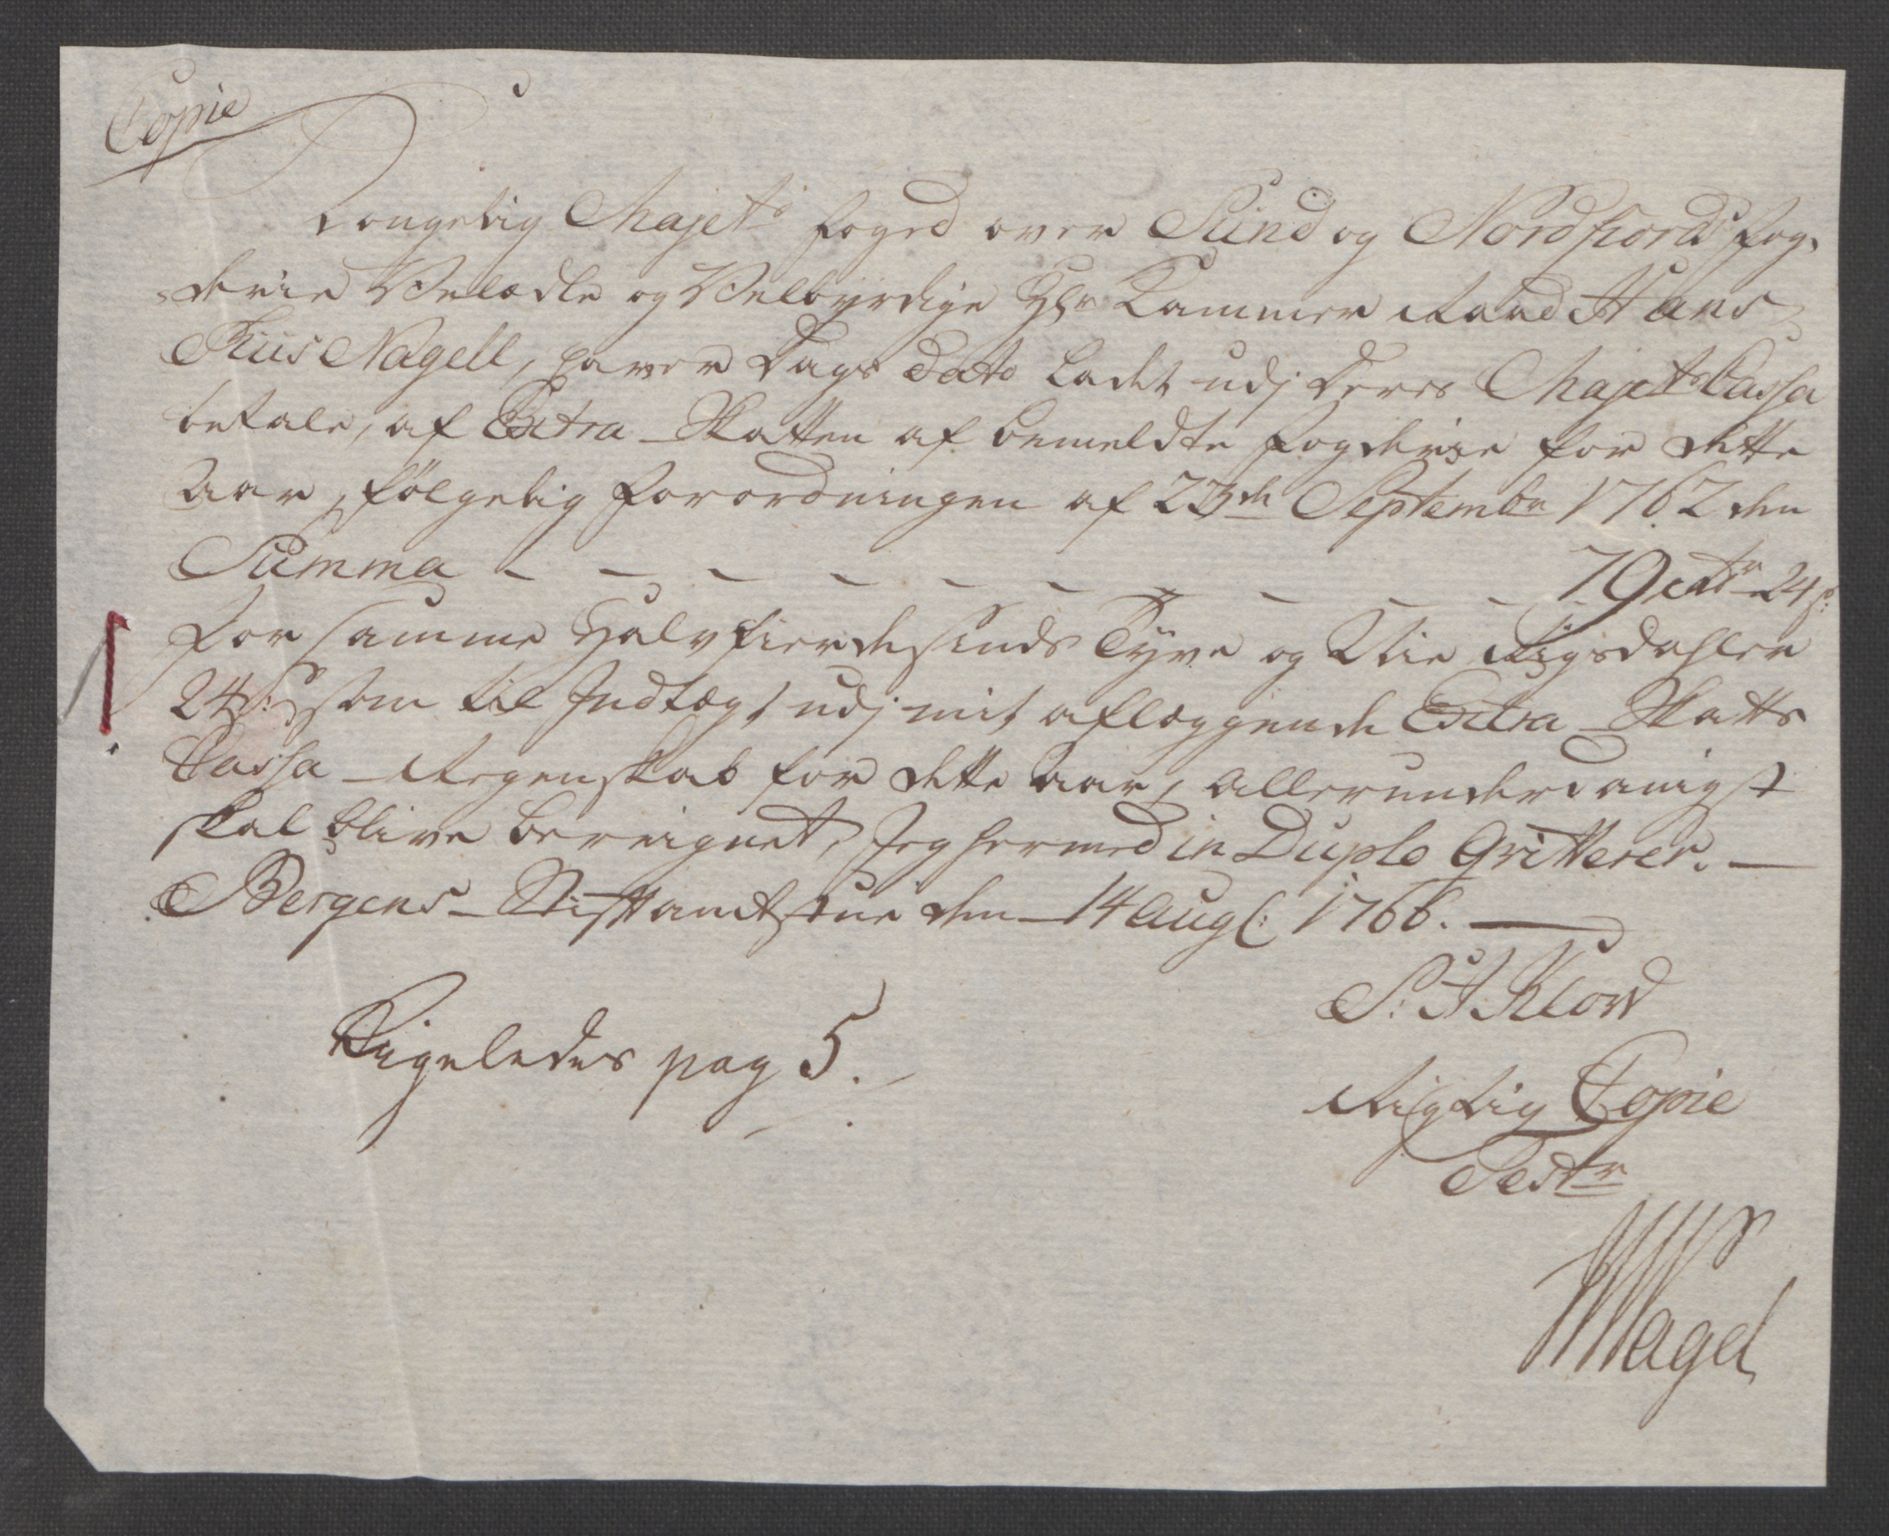 Copie
Kongelig Majets foged over Sund og Nordfiords fog,
derie Velædle og Velbyrdige Hr Kammer Raad Hans
Thiis Nagell, haver Dags Dato Ladet udj Deres Majets Cassa
betale, af Extra Skatten af bemeldte fogderie for dette
Aar, følgelig forordningen af 23de Septembr 1762 den
Summa - - - - - - - - - - - 79 rdr 24 s:
For samme Halvfierdesinds Tyve og Nie Rigsdahler
24 s: som til Indtægt udj mit aflæggende Extra Skatts
Cassa Regenskab for dette Aar, allerunderdanigst
skal blive beregnet, Jeg hermed in Duplo Qvitterer. —
Bergens Stiftamtstue den 14 Aug: 1766. —
Rigeledes pag 5.
Rigtig Copie
Test
Nagel